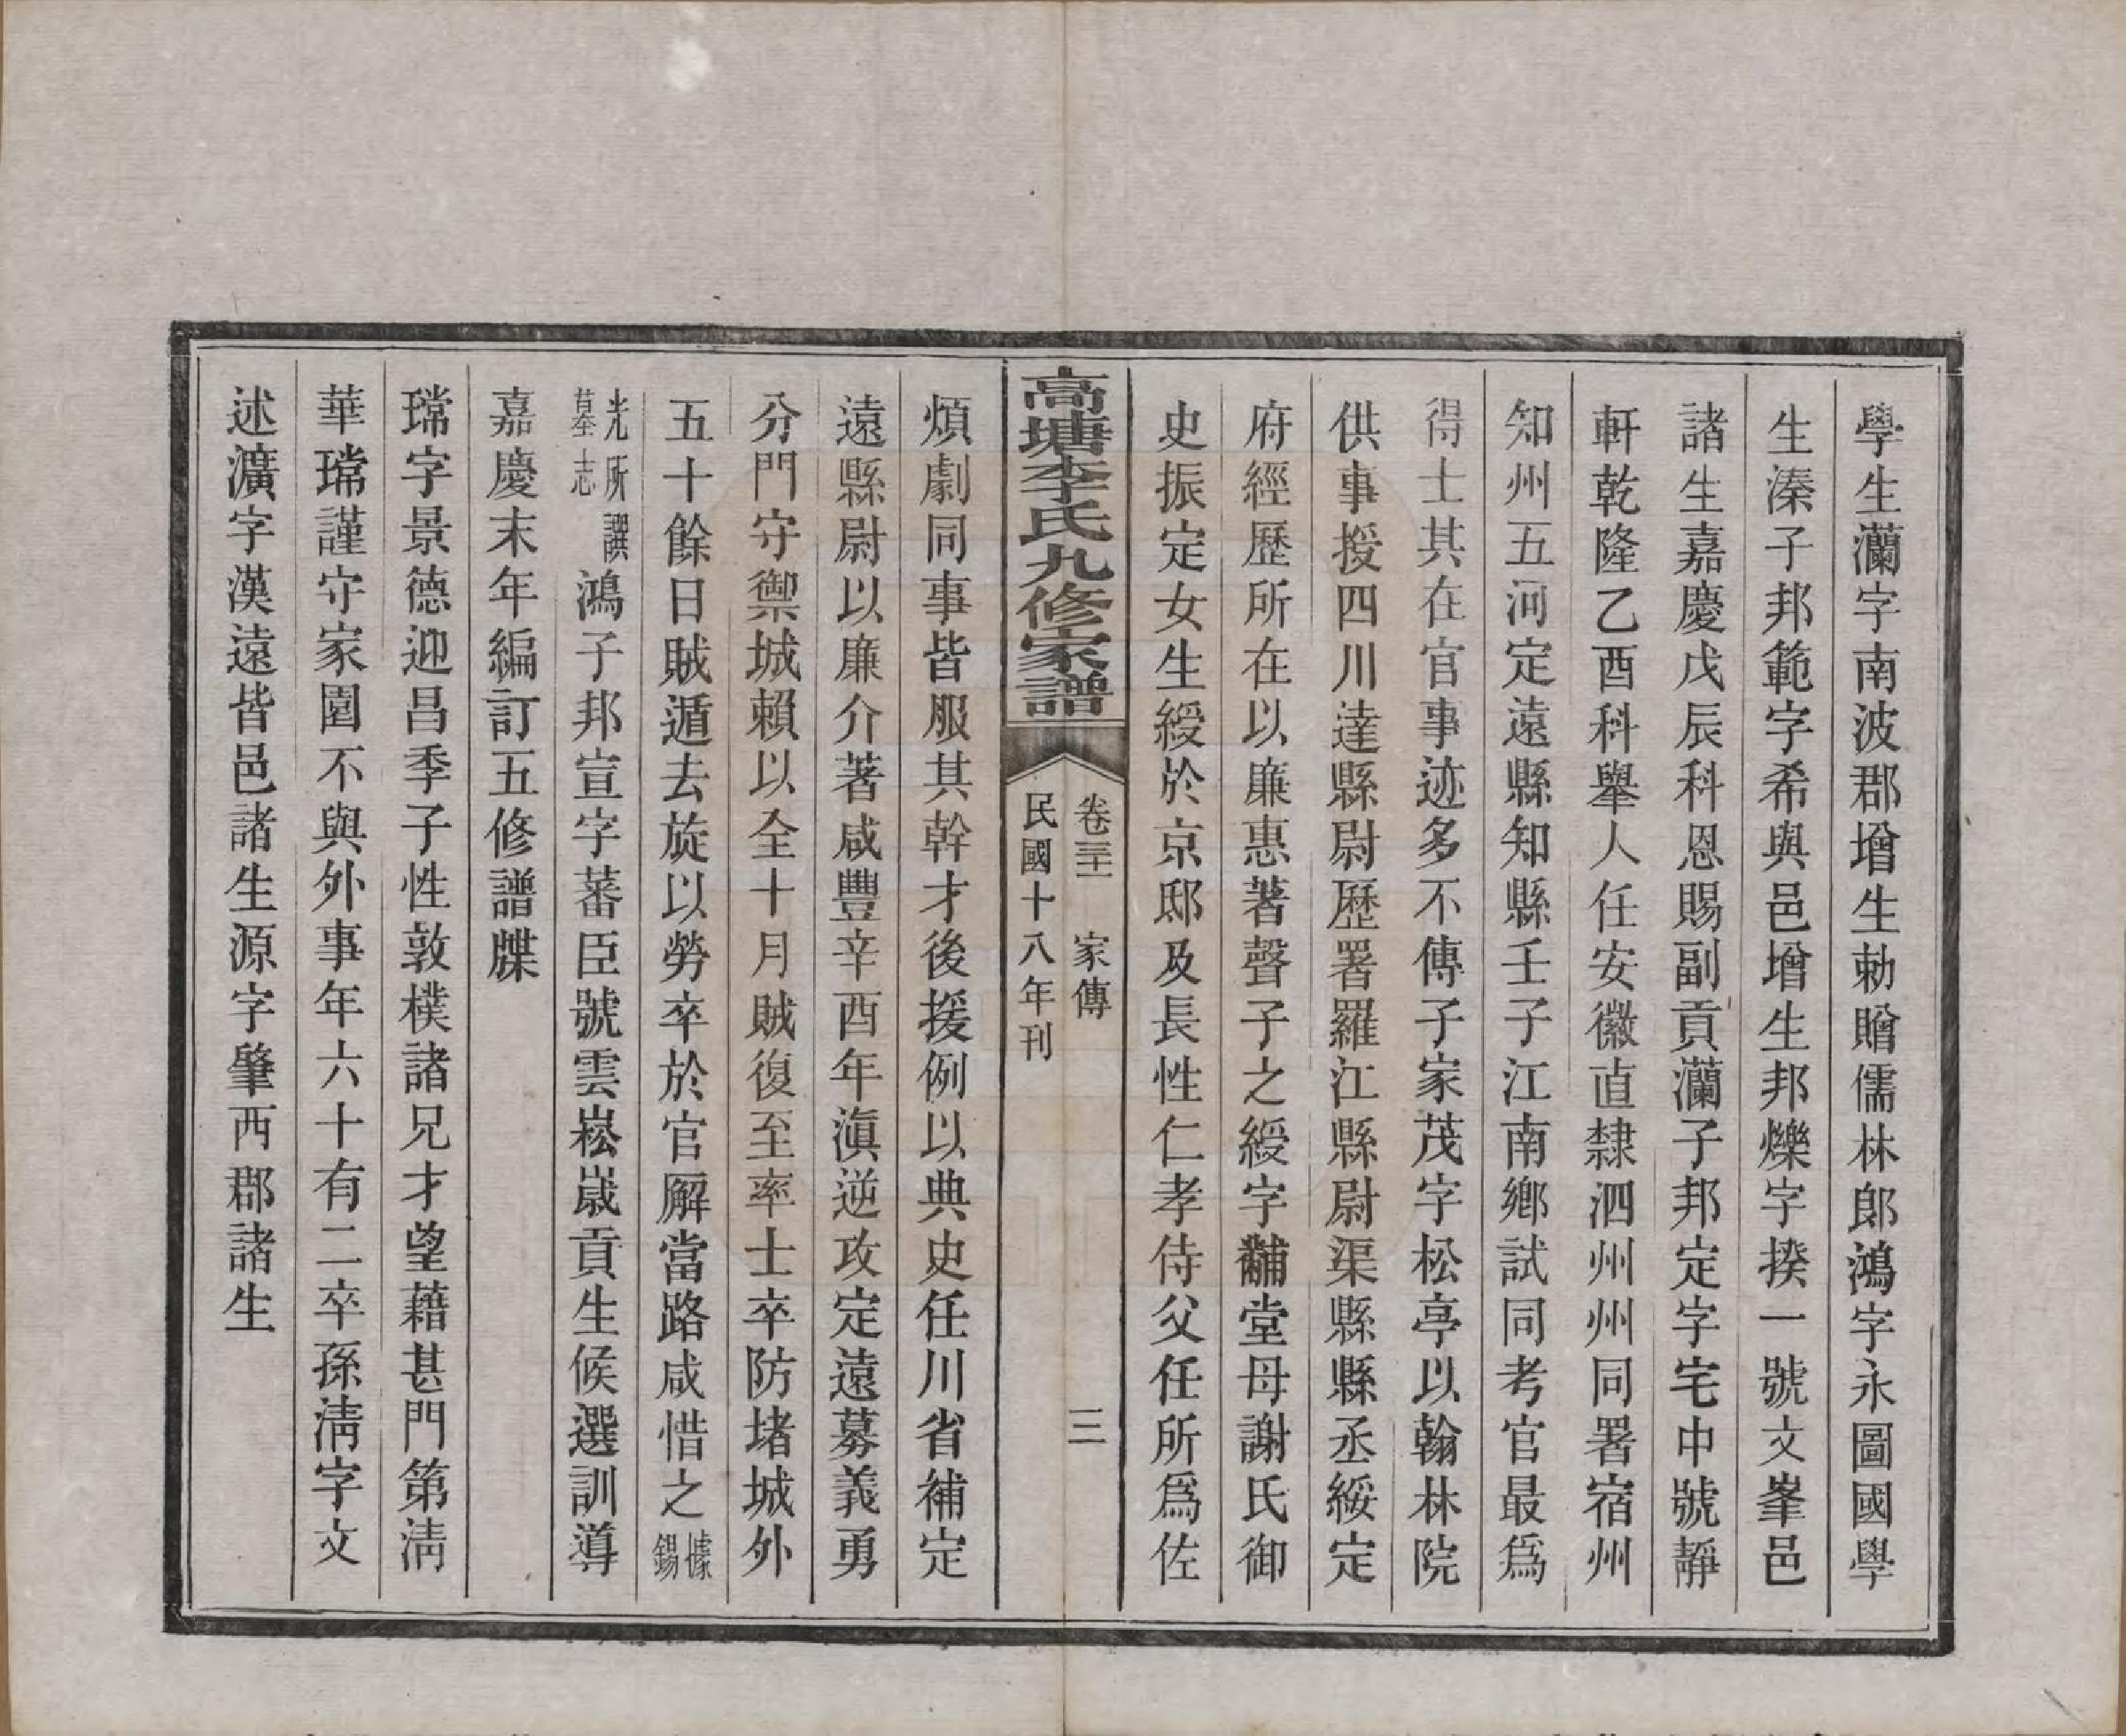 學生灡字南波郡增生勅贈儒林郎鴻字永圖國學
生溱子邦範字希與邑增生邦爍字揆一號文峯邑
諸生嘉慶戊辰科恩賜副貢灡子邦定字宅中號靜
軒乾隆乙酉科舉人任安徽直隸泗州州同署宿州
知州五河定遠縣知縣壬子江南鄉試同考官最爲
得士其在官事迹多不傳子家茂字松亭以翰林院
供事授四川達縣尉歷署羅江縣尉渠縣縣丞綏定
府經歷所在以廉惠著聲子之綬字黼堂母謝氏御
史振定女生綬於京邸及長性仁孝侍父任所爲佐
高塘李氏九修家譜
卷三十一 家傳 三
民國十八年刊
煩劇同事皆服其幹才後援例以典史任川省補定
遠縣尉以廉介著咸豐辛酉年滇逆攻定遠募義勇
分門守禦城賴以全十月賊復至率士卒防堵城外
五十餘日賊遁去旋以勞卒於官廨當路咸惜之據錫
光所譔墓志鴻子邦宣字蕃臣號雲崧歲貢生候選訓導
嘉慶末年編訂五修譜牒
瑺字景德迎昌季子性敦樸諸兄才望藉甚門第淸
華瑺謹守家園不與外事年六十有二卒孫淸字文
述瀇字漢遠皆邑諸生源字肇西郡諸生